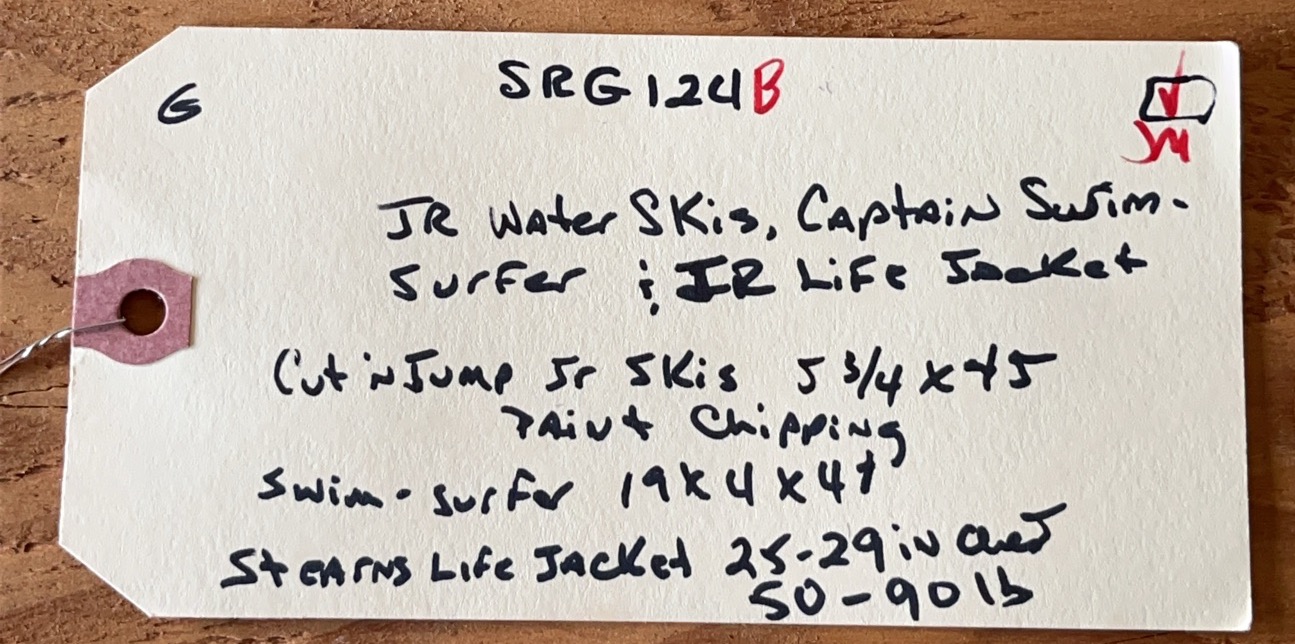 G SRG124B
JR Water Skis, Captain Swim-
Surfer & JR Life Jacket
Cut 'n Jump Jr Skis 5 3/4 x 45
Paint Chipping
Swim-surfer 19 x 4 x
Stearns Life Jacket 25-29 in Chest
50-90 lb